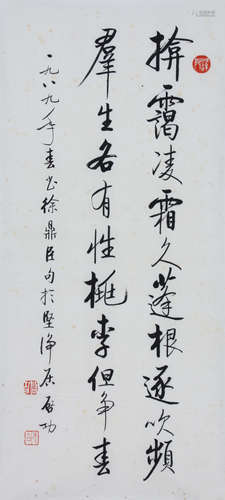 靄凌霜久蓬根逐吹頻
羣生各有性桃李但争春
一九八九年春书徐鼎臣句於堅净居啓功